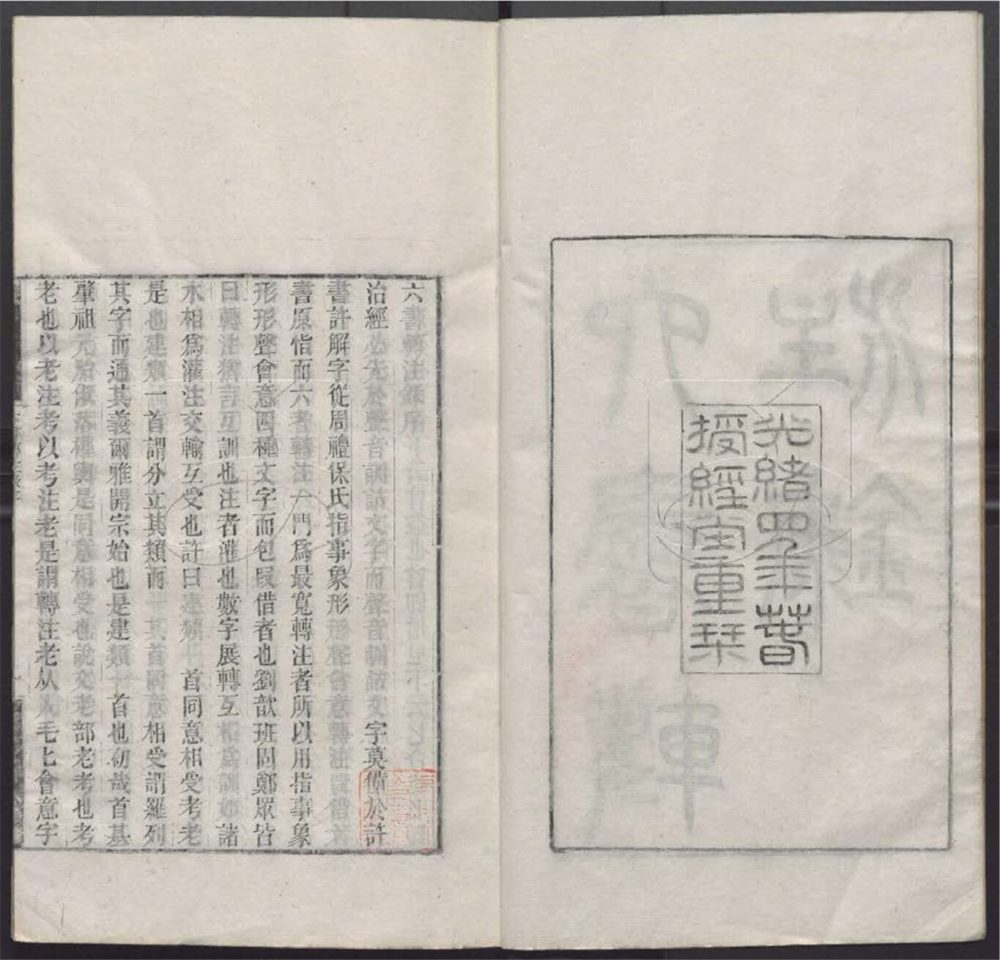 光緒四年萅
授經堂重栞
六書轉注錄序
治經必先於聲音訓詁文字而聲音訓詁文字莫備於許
書許解字從周禮保氏指事象形形聲會意轉注假借六
書原恉而六者轉注一門爲最寬轉注者所以用指事象
形形聲會意四種文字而包叚借者也劉歆班固鄭眾皆
曰轉注猶言互訓也注者灌也數字展轉互相爲訓如諸
水相爲灌注交輸互受也許曰建類一首同意相受考老
是也建類一首謂分立其類而一其首同意相受謂羅列
其字而通其義爾雅開宗始也是建類一首也初哉首基
肇祖元胎俶落權輿是同意相受也說文老部老考也考
老也以老注考以考注老是謂轉注老从人毛匕會意字